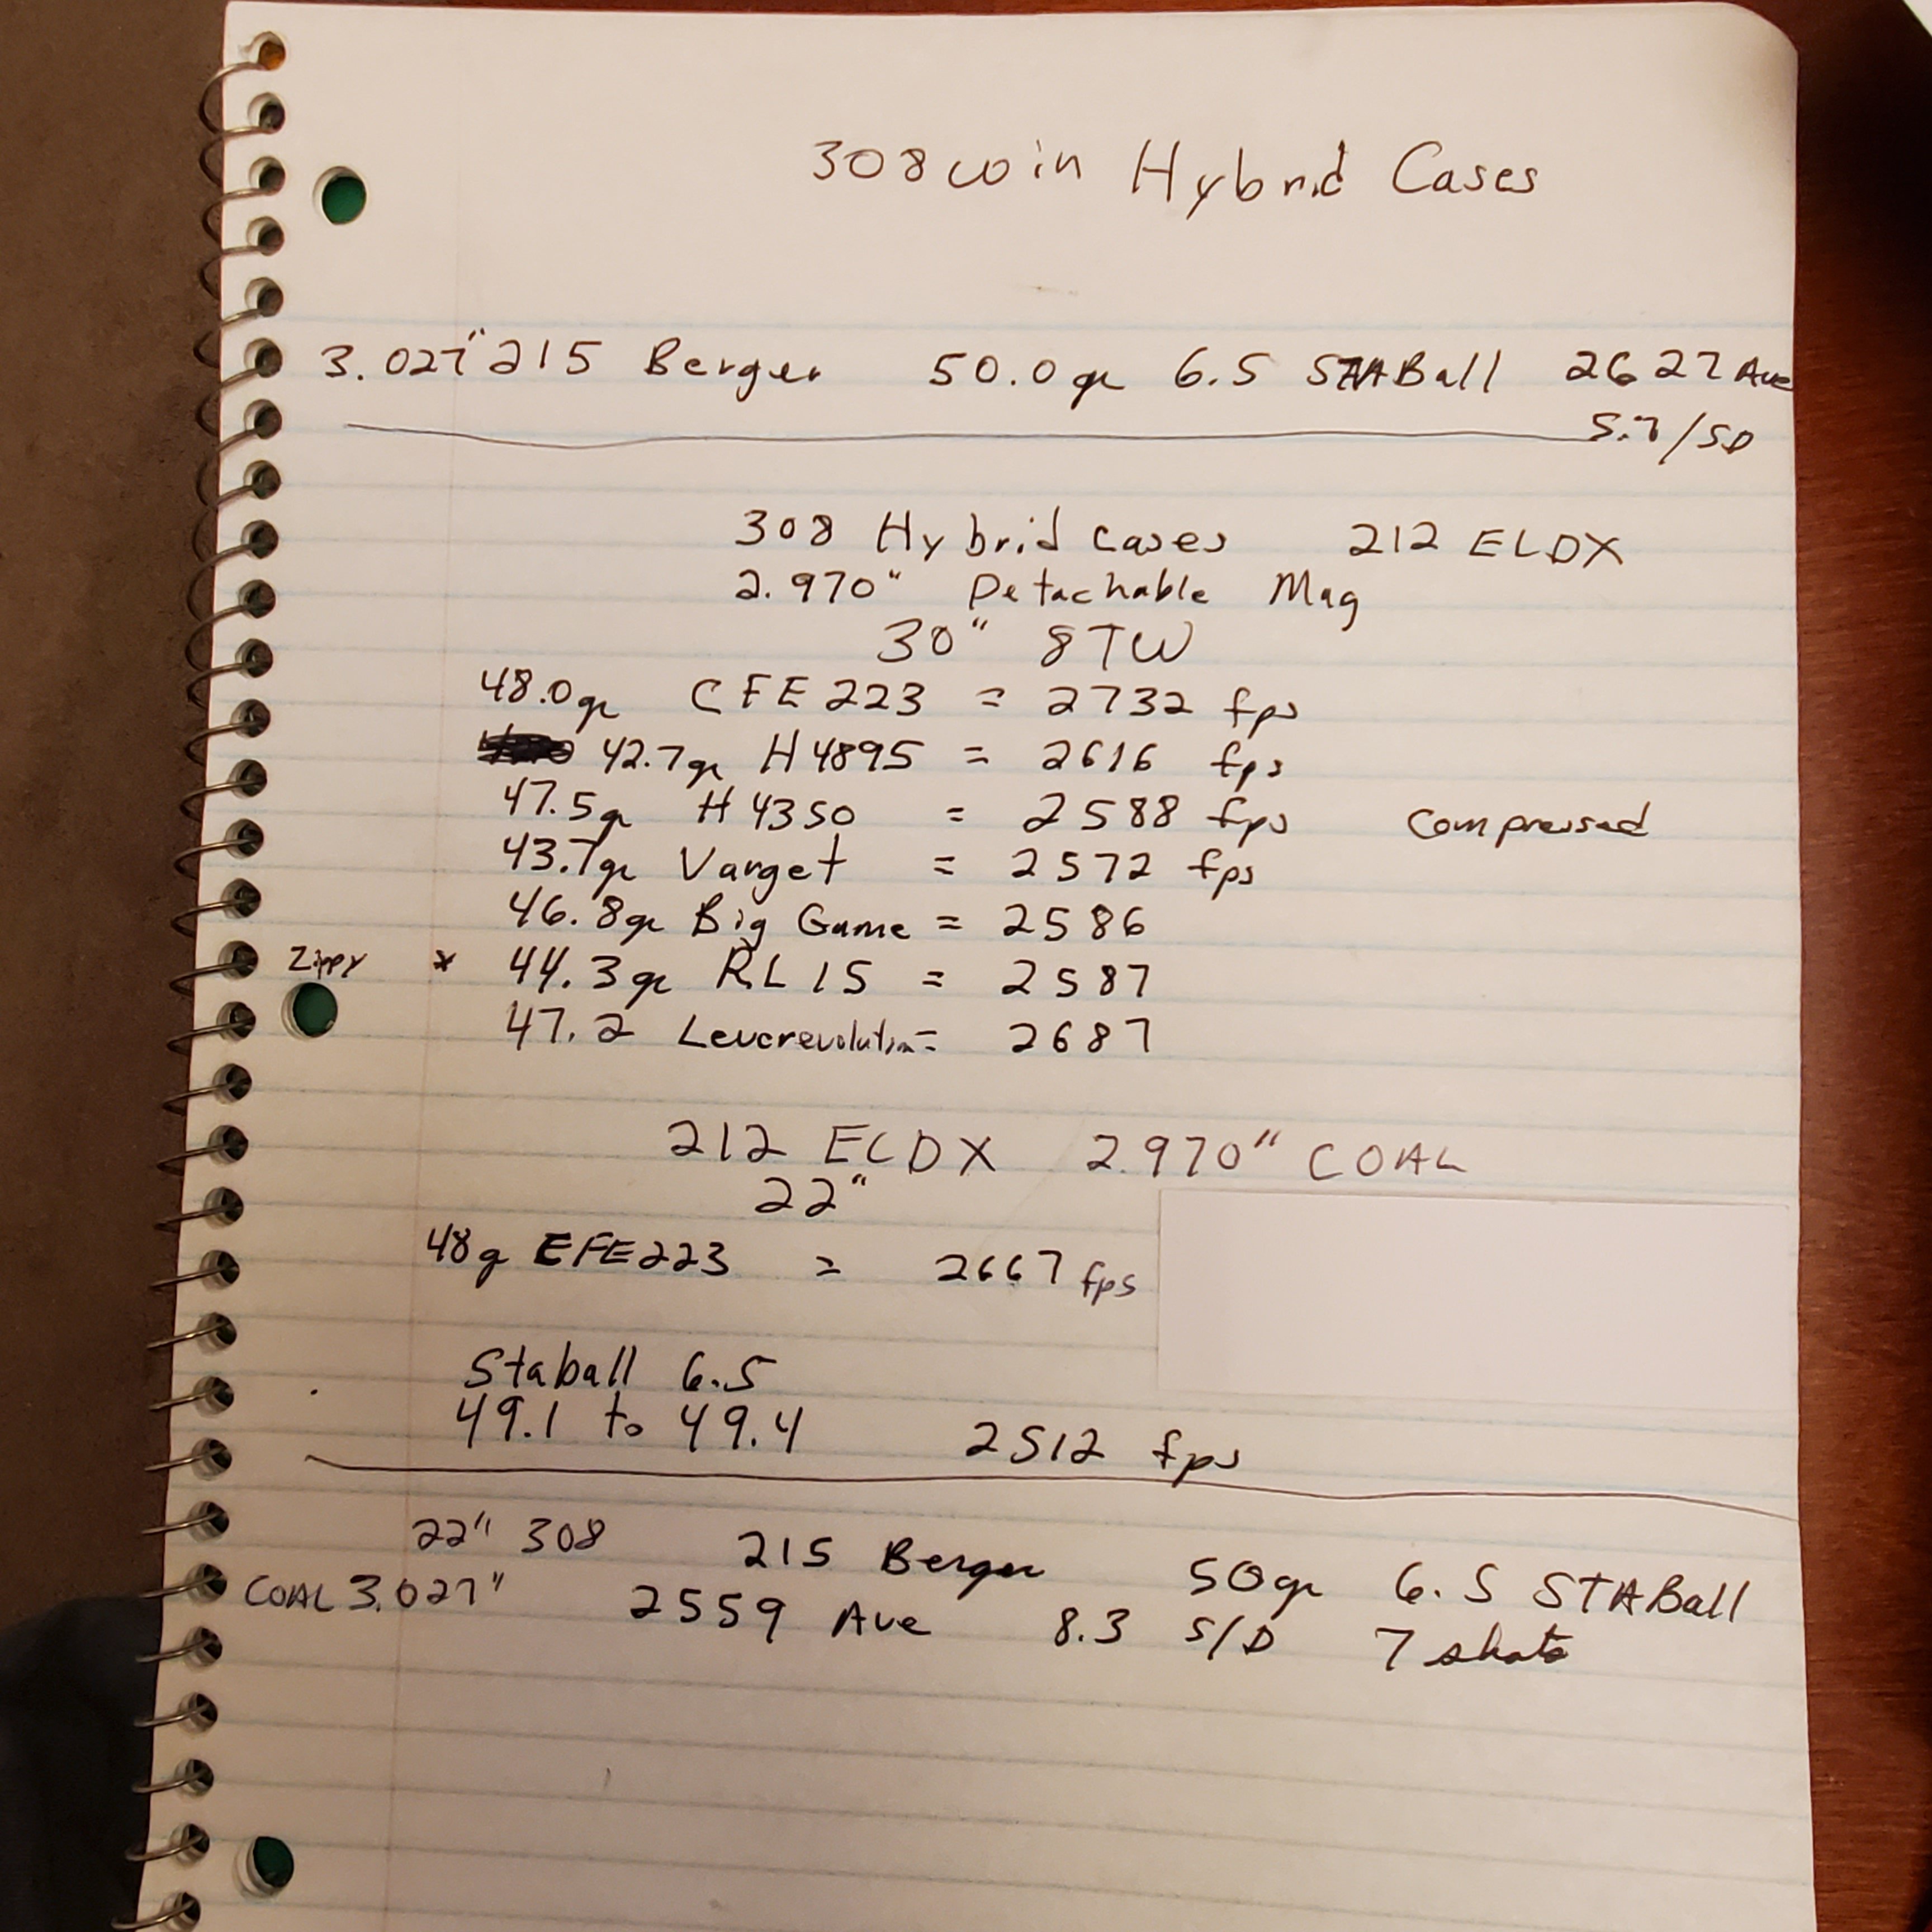 308 win Hybrid Cases
3.027" 215 Berger 50.0gr 6.5 STABall 2627 Ave
5.7/SD
308 Hybrid Cases 212 ELDX
2.970" Detachable Mag
30" 8TW
48.0gr CFE 223 = 2732 fps
42.7gr H4895 = 2616 fps
47.5gr H4350 = 2588 fps Compressed
43.7gr Varget = 2572 fps
46.8gr Big Game = 2586
Zippy * 44.3gr RL 15 = 2587
47.2 Leverevolution = 2687
212 ELDX 2.970" COAL
22"
48g CFE223 = 2667 fps
Staball 6.5
49.1 to 49.4 2512 fps
22" 308 215 Berger 50gr 6.5 STABall
COAL 3.027" 2559 Ave 8.3 S/D 7 shots